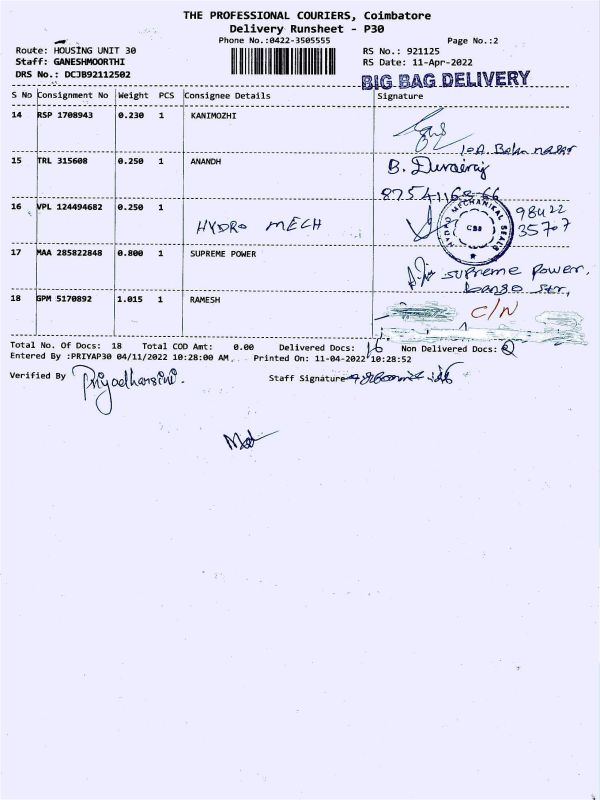 THE PROFESSIONAL COURIERS, Coimbatore
Delivery Runsheet - P30
Phone No.:0422-3505555
Page No.:2
Route: HOUSING UNIT 30
RS No.: 921125
Staff: GANESHMOORTHI
RS Date: 11-Apr-2022
DRS No.: DCJB92112502
BIG BAG DELIVERY
S No Consignment No Weight PCS Consignee Details Signature
14 RSP 1708943 0.230 1 KANIMOZHI
15 TRL 315608 0.250 1 ANANDH
B. Durairaj
16 VPL 124494682 0.250 1
HYDRO MECH
HYDRO MECHANIKAL SEALS
CBB
98422
35707
17 MAA 285822848 0.800 1 SUPREME POWER
supreme power,
18 GPM 5170892 1.015 1 RAMESH
C/N
Total No. Of Docs: 18 Total COD Amt: 0.00 Delivered Docs: 16 Non Delivered Docs: 2
Entered By :PRIYAP30 04/11/2022 10:28:00 AM. Printed On: 11-04-2022 10:28:52
Verified By Priyadharsini.
Staff Signature